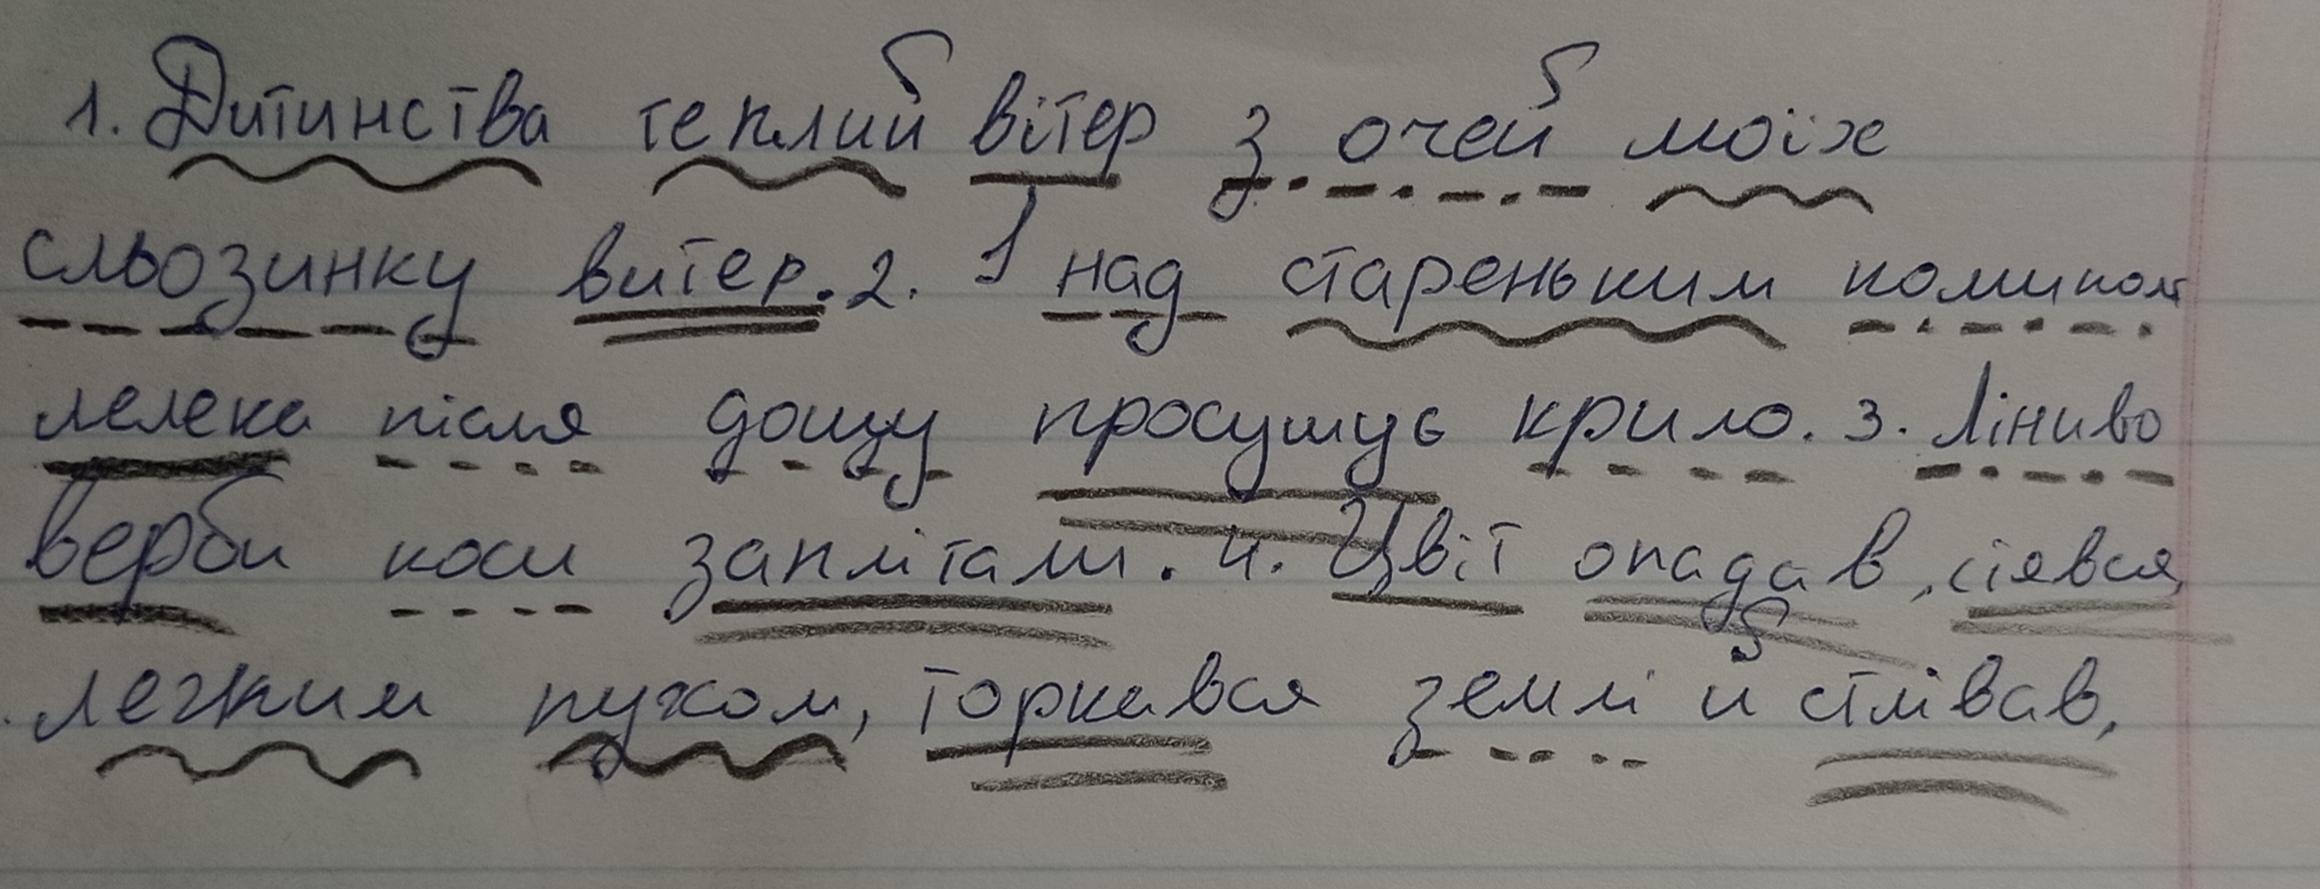 1. Дитинства теплий вітер з очей моїх
сльозинку витер. 2. І над стареньким комином
лелека після дощу просушує крило. 3. Ліниво
верби коси заплітали. 4. Цвіт опадав, сіявся
легким пухом, торкався землі й співав,